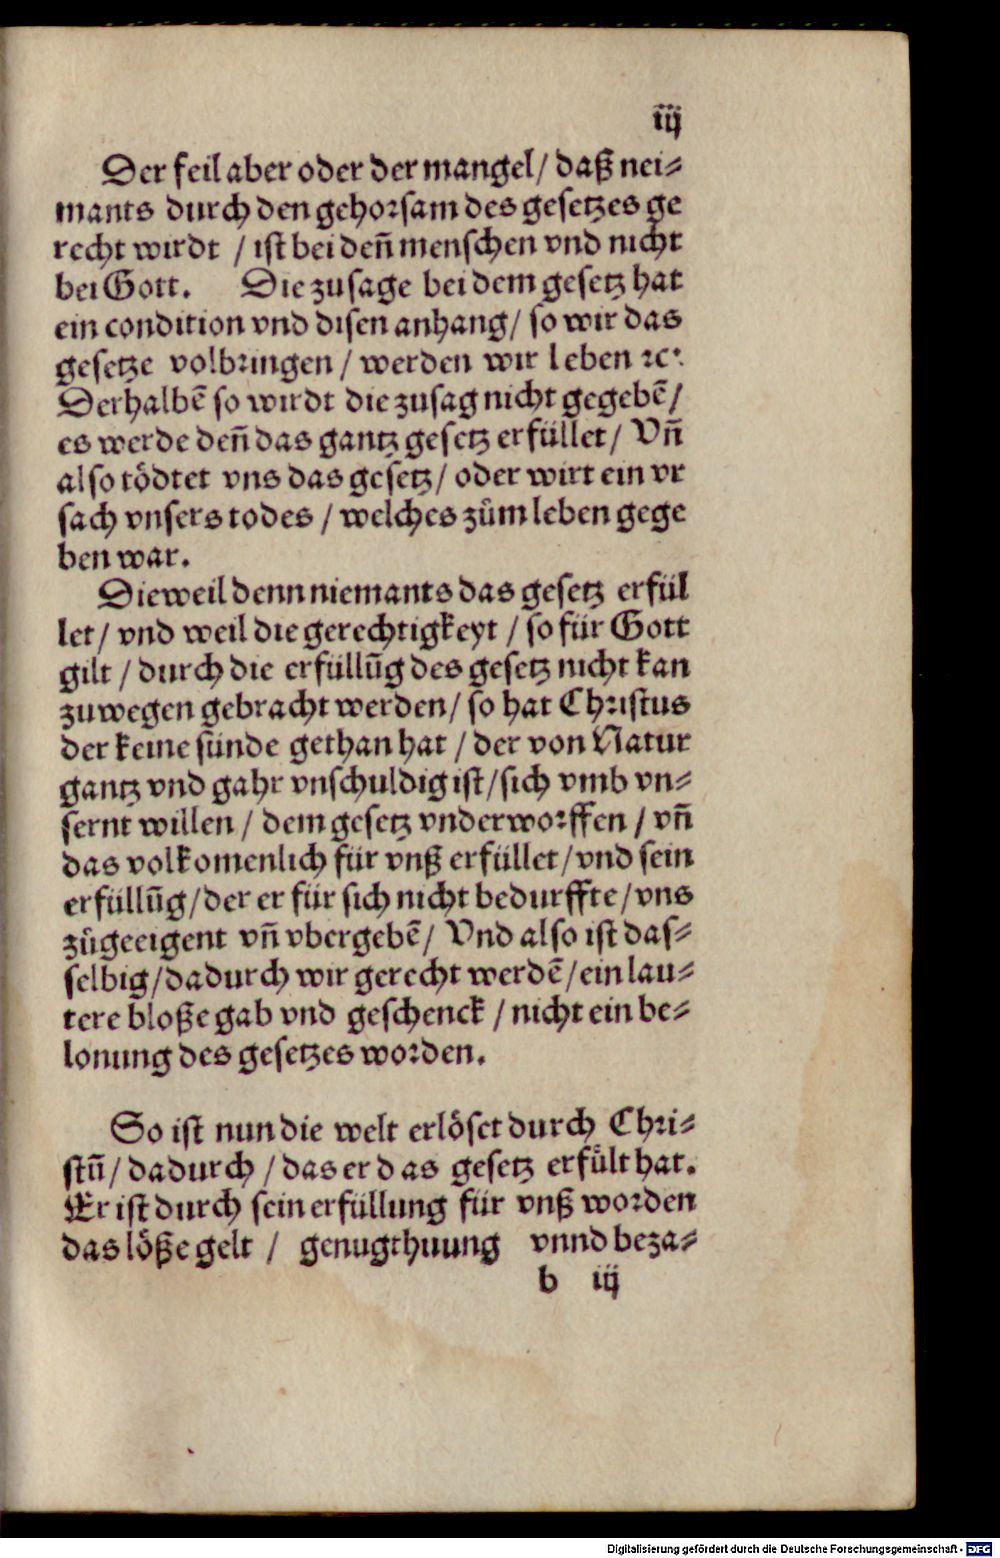 iij
Der feil aber oder der mangel/ daß nei⸗
mants durch den gehorsam des gesetzes ge
recht wirdt / ist bei deñ menschen vnd nicht
bei Gott. Die zusage bei dem gesetz hat
ein condition vnd disen anhang/ so wir das
gesetze volbringen / werden wir leben ꝛc.
Derhalbẽ so wirdt die zusag nicht gegebẽ/
es werde deñ das gantz gesetz erfüllet/ Vñ
also tödtet vns das gesetz/ oder wirt ein vr
sach vnsers todes / welches zům leben gege
ben war.
Dieweil denn niemants das gesetz erfül
let/ vnd weil die gerechtigkeyt / so für Gott
gilt / durch die erfüllũg des gesetz nicht kan
zuwegen gebracht werden/ so hat Christus
der keine sünde gethan hat / der von Natur
gantz vnd gahr vnschuldig ist/sich vmb vn⸗
sernt willen / dem gesetz vnderworffen / vñ
das volkomenlich für vnß erfüllet/vnd sein
erfüllũg/der er für sich nicht bedurffte/vns
zůgeeigent vñ vbergebẽ/ Vnd also ist das⸗
selbig/dadurch wir gerecht werdẽ/ein lau⸗
tere bloße gab vnd geschenck / nicht ein be⸗
lonung des gesetzes worden.
So ist nun die welt erlöset durch Chri⸗
stũ/ dadurch / das er das gesetz erfült hat.
Er ist durch sein erfüllung für vnß worden
das löße gelt / genugthuung vnnd beza⸗
b iij
Digitalisierung gefördert durch die Deutsche Forschungsgemeinschaft - DFG